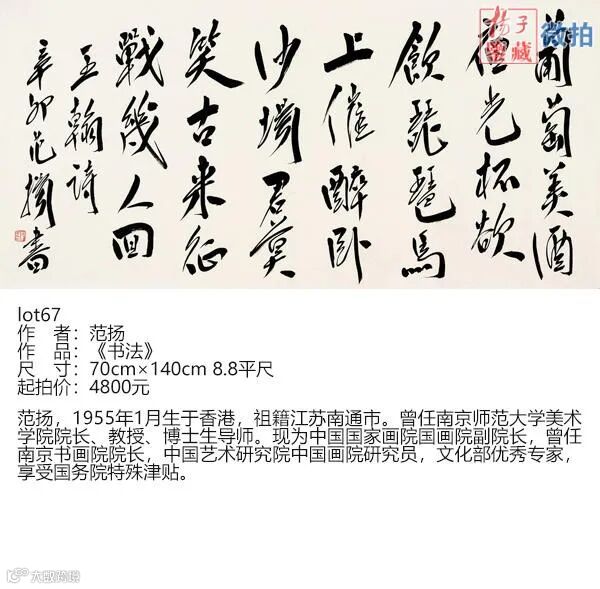 葡萄美酒
夜光杯欲
飲琵琶馬
上催醉卧
沙場君莫
笑古來征
戰幾人回
王翰詩
辛卯范揚書
揚子
藏
微拍
lot67
作 者：范扬
作 品：《书法》
尺 寸：70cm×140cm 8.8平尺
起拍价：4800元
范扬，1955年1月生于香港，祖籍江苏南通市。曾任南京师范大学美术
学院院长、教授、博士生导师。现为中国国家画院国画院副院长，曾任
南京书画院院长，中国艺术研究院中国画院研究员，文化部优秀专家，
享受国务院特殊津贴。
大数跨境